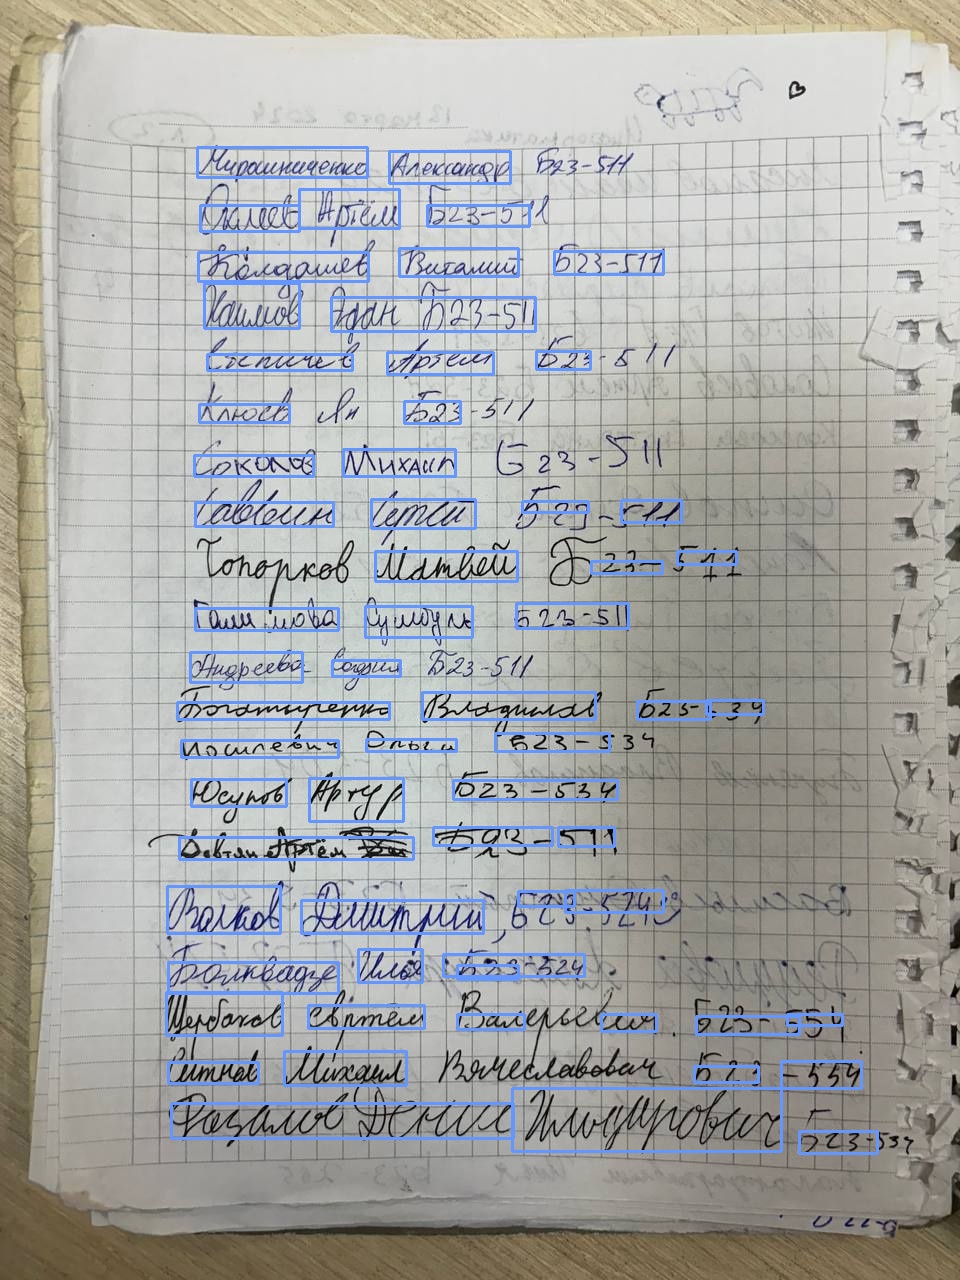 Мирошниченко Александр Б23-511
Артём Б23-511
Колдашев Виталий Б23-511
Наимов Эдан Б23-511
Степичев Артём Б23-511
Клюев Ян Б23-511
Соколов Михаил Б23-511
Саввин Сергей Б23-511
Топорков Матвей Б23-511
Сумбуль Б23-511
Андреева Б23-511
Богатыренко Владислав Б25-534
Иосилевич Ольга Б23-534
Юсупов Артур Б23-534
Артём Б23-511
Волков Дмитрий, Б23-524
Болквадзе Илья Б23-524
Щербаков Валерьевич. Б23-554
Ситнов Михаил Вячеславович Б23-554
Фазлов Денис Ильдирович Б23-534